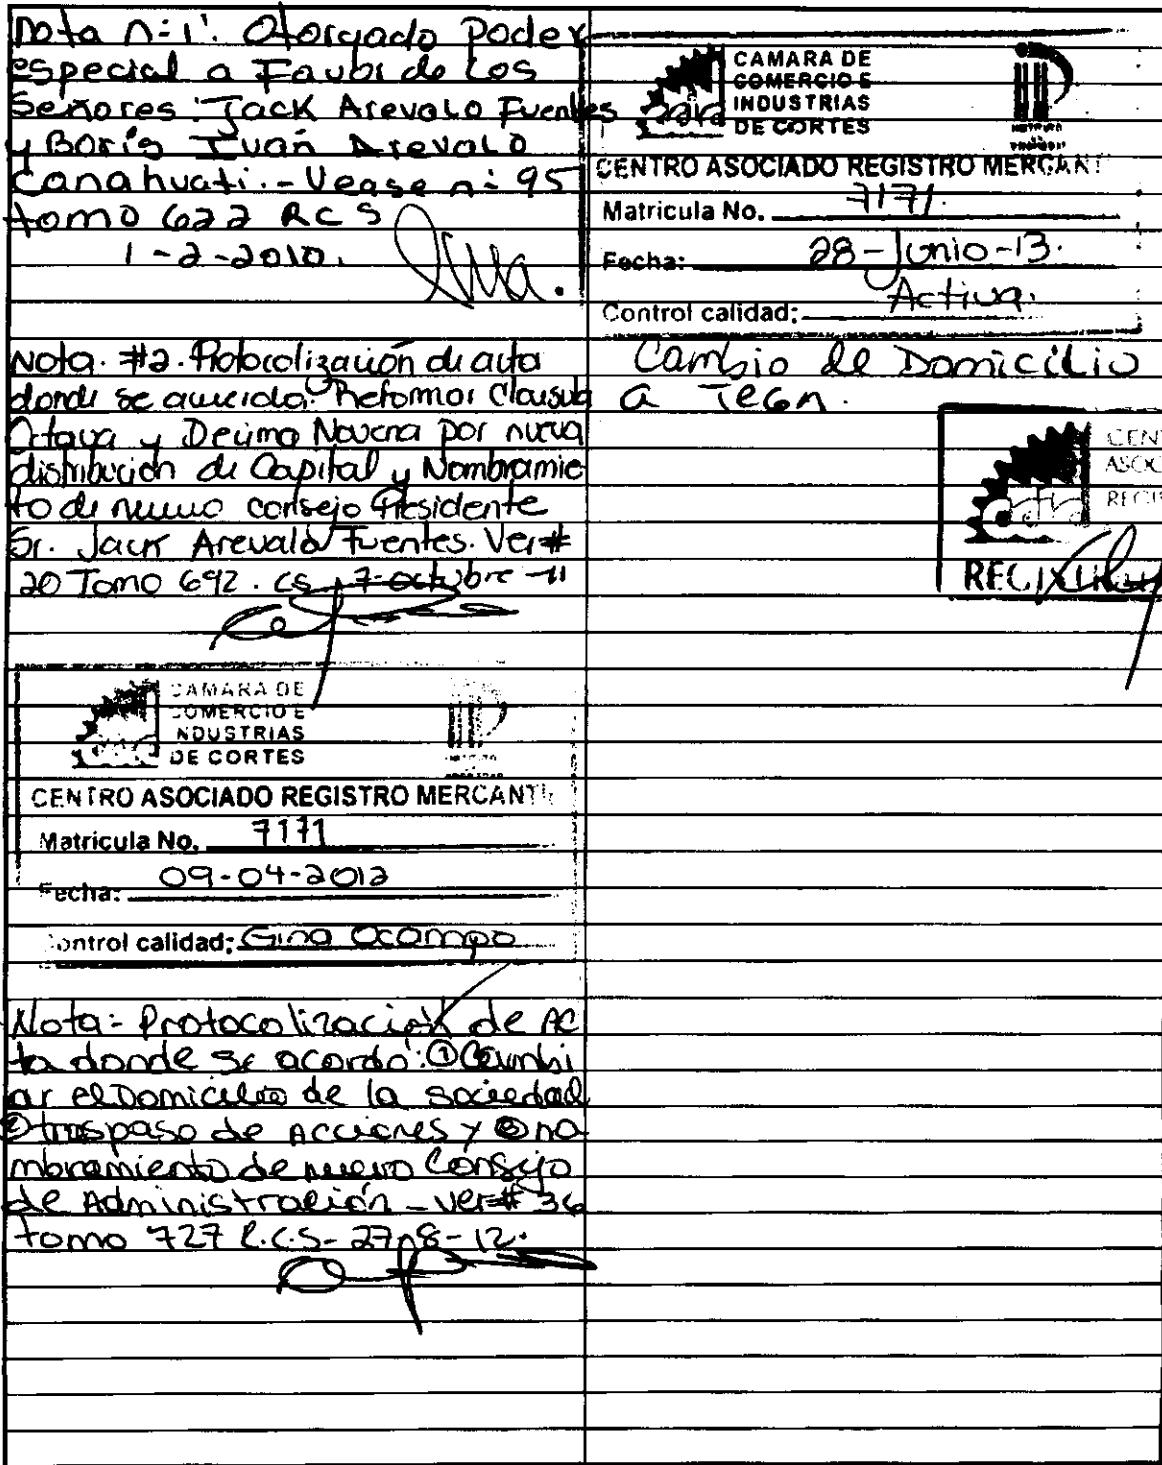 Nota n=1'. Otorgado Poder
especial a Favor de Los
Señores: Jack Arevalo Fuentes
y Boris Ivan Arevalo
Canahuati.- Vease n= 95
tomo 622 RCS
1-2-2010.
Nota. #2. Protocolización de acta
donde se acuerda: Reformar Clausula
Octava y Decimo Novena por nueva
distribución de Capital y Nombramie
to de nuevo consejo Presidente
Sr. Jack Arevalo Fuentes. Ver #
20 Tomo 692. CS 7-octubre-11
CAMARA DE
COMERCIO E
INDUSTRIAS
DE CORTES
CENTRO ASOCIADO REGISTRO MERCANTI
Matricula No. 7171
Fecha: 09-04-2012
Control calidad: Gina Ocampo
Nota:- Protocolización de Ac
ta donde se acordo: ① Cambi
ar el Domicilio de la sociedad
② traspaso de Acciones y ③ no
mbramiento de nuevo Consejo
de Administración - ver # 36
tomo 727 R.C.S- 27-8-12.
CAMARA DE
COMERCIO E
INDUSTRIAS
DE CORTES
CENTRO ASOCIADO REGISTRO MERCANTI
Matricula No. 7171.
Fecha: 28-Junio-13.
Control calidad: Activa.
Cambio de Domicilio
a Tegn.
CENT
ASOC
REGIS